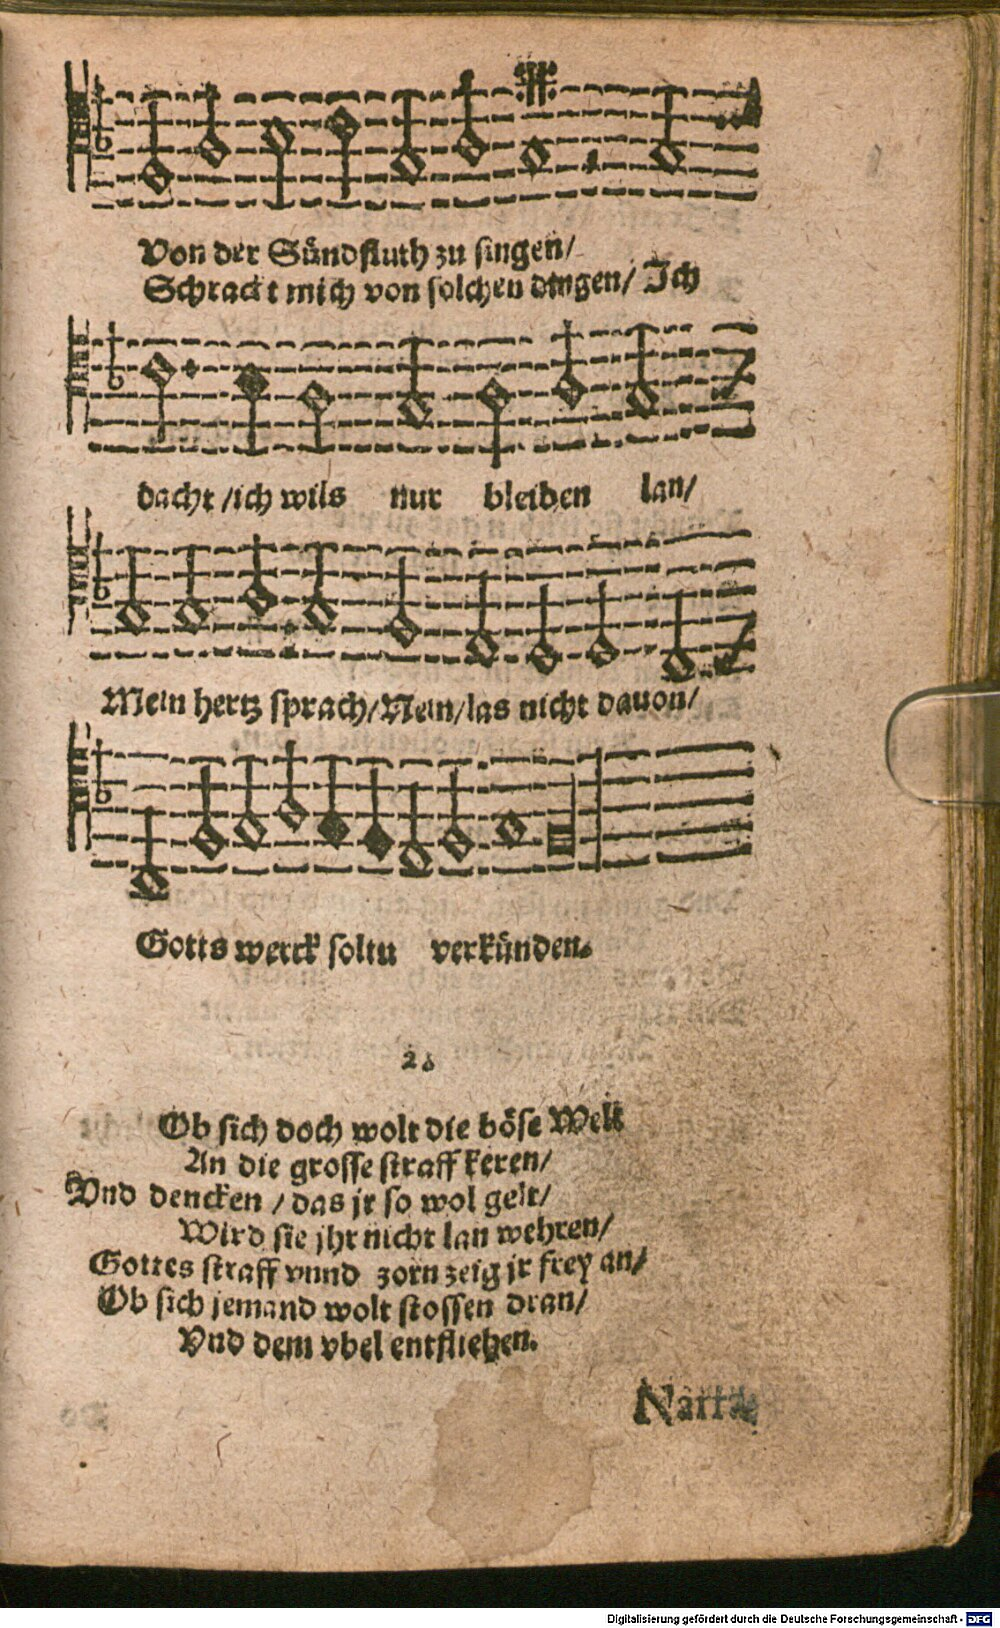 Von der Sündfluth zu singen/
Schrackt mich von solchen dingen/ Ich
dacht/ich wils nur bleiben lan/
Mein hertz sprach/Nein/las nicht dauon/
Gotts werck soltu verkünden.
2.
Ob sich doch wolt die böse Welt
An die grosse straff keren/
Vnd dencken/das jr so wol gelt/
Wird sie jhr nicht lan wehren/
Gottes straff vnnd zorn zeig jr frey an/
Ob sich jemand wolt stossen dran/
Vnd dem vbel entfliehen.
Digitalisierung gefördert durch die Deutsche Forschungsgemeinschaft - DFG